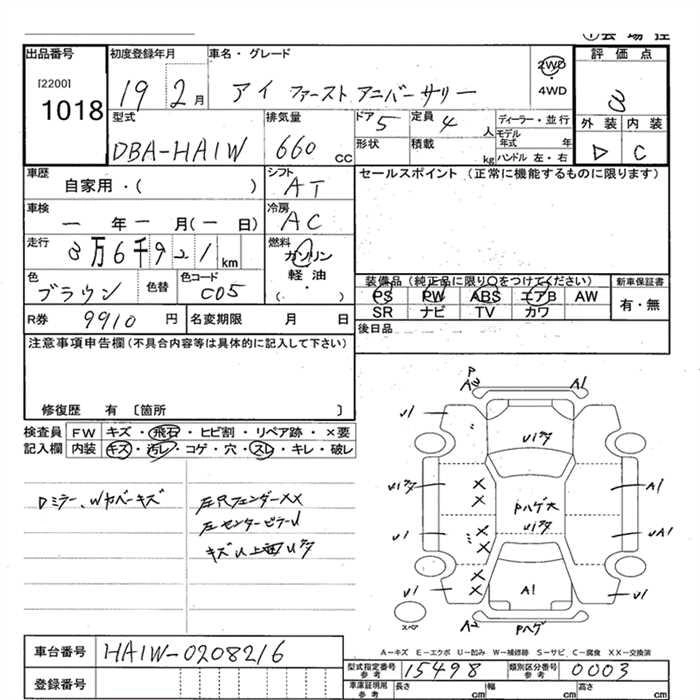 出品番号
[2200]
1018
初度登録年月
19 2月
車名・グレード
アイ ファースト アニバーサリー
2WD
4WD
評価点
3
外装 内装
D C
型式
DBA-HA1W
排気量
660 CC
ドア 5
定員 4 人
形状
積載 kg
ディーラー・並行
モデル年式 年
ハンドル 左・右
車歴
自家用・( )
シフト
AT
セールスポイント (正常に機能するものに限ります)
車検
一年一月(一日)
冷房
AC
走行
3万6千921km
燃料
ガソリン
軽油
( ・ )
色
ブラウン
色替
色コード
C05
装備品 (純正品に限り○をつけてください)
PS PW ABS エアB AW
SR ナビ TV カワ
新車保証書
有・無
R券 9910 円
名変期限 月 日
後日品
注意事項申告欄(不具合内容等は具体的に記入して下さい)
修復歴 有 〔箇所 〕
検査員記入欄
FW キズ・飛石・ヒビ割・リペア跡・×要
内装 キズ・汚レ・コゲ・穴・スレ・キレ・破レ
Dミラー、Wカバーキズ
左Rフェンダーxx
左センターピラーU
キズU上面Uタ
A2
A1
U1
U1タ
U1
U1タ
A1
Pハゲ大
U1タ
U1
UA1
U1
A1
U1
A2
Pハゲ
スペア
A－キズ E－エクボ U－凹み W－補修跡 S－サビ C－腐食 XX－交換済
車台番号 HA1W-0208216
登録番号
型式指定番号 参考 15498
類別区分番号 参考 0003
車庫証明用 参考
長さ cm
幅 cm
高さ cm